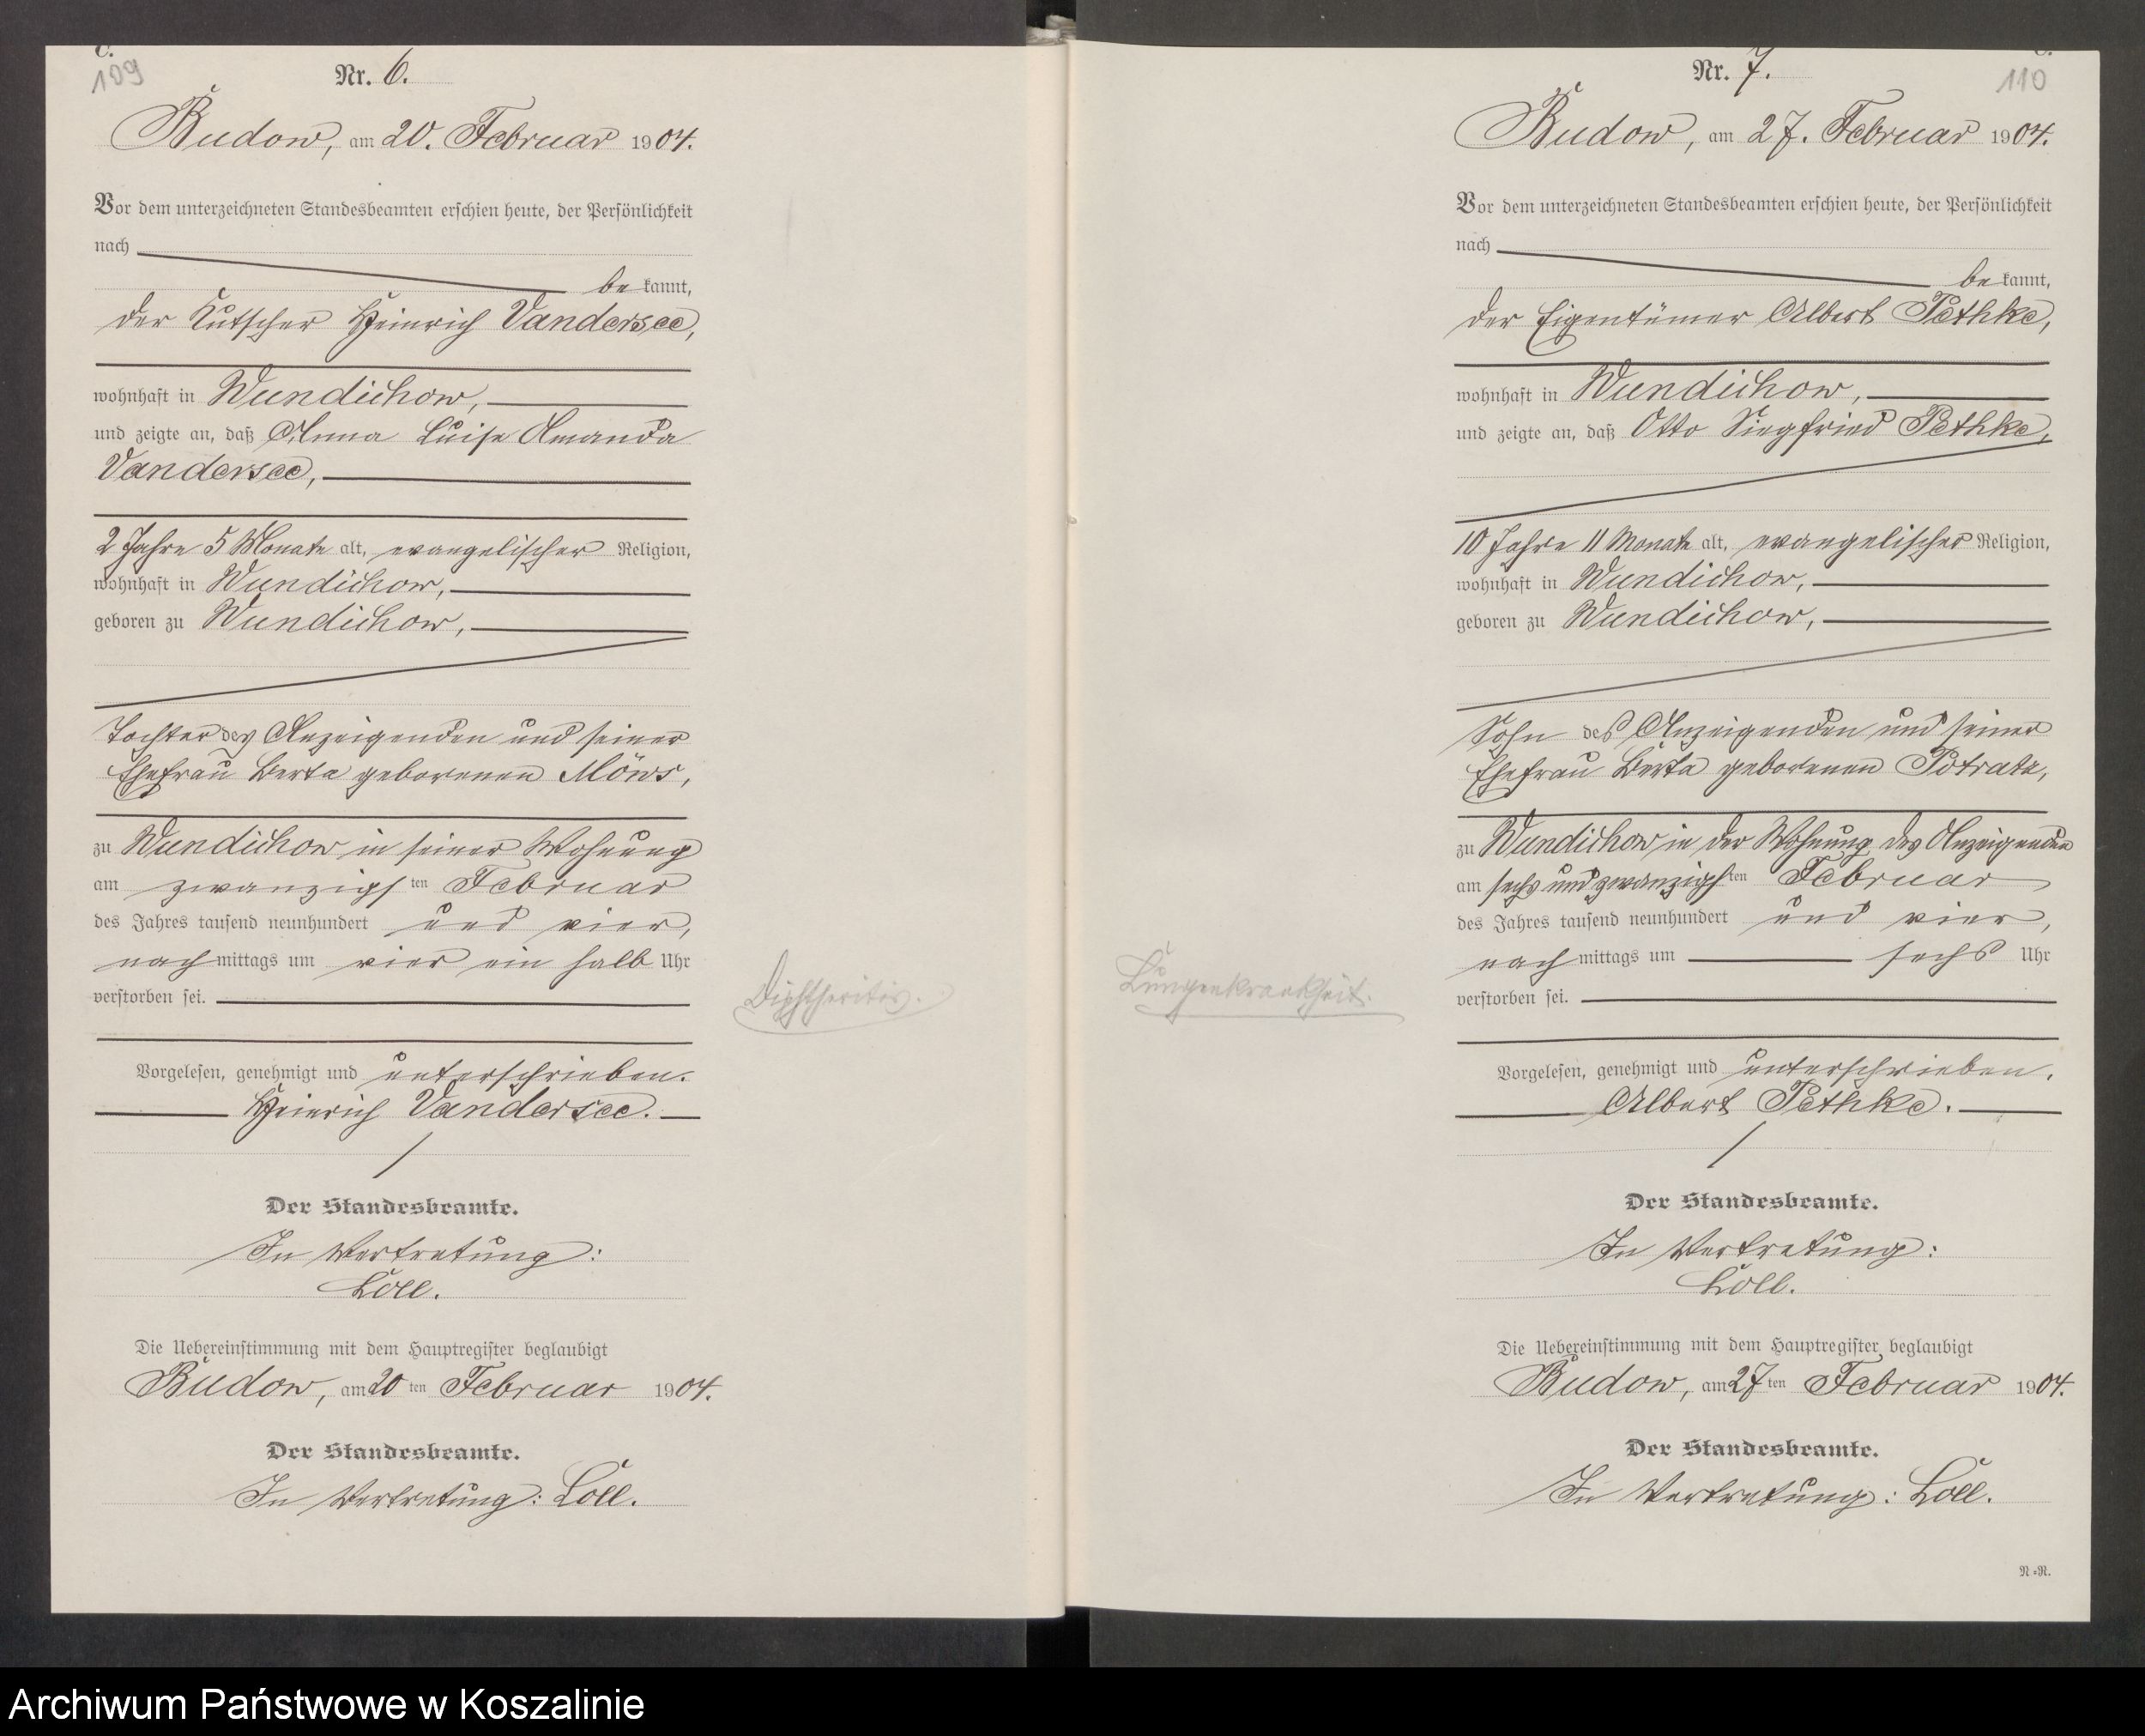 C.
109
Nr. 6.
Budow, am 20. Februar 1904.
Vor dem unterzeichneten Standesbeamten erschien heute, der Persönlichkeit
nach
be kannt,
der Kutscher Heinrich Vandersee,
wohnhaft in Wundichow,
und zeigte an, daß Anna Luise Amanda
Vandersee,
2 Jahre 5 Monate alt, evangelischer Religion,
wohnhaft in Wundichow,
geboren zu Wundichow,
Tochter des Anzeigenden und seiner
Ehefrau Berta geborenen Möws,
zu Wundichow in seiner Wohnung
am zwanzigsten Februar
des Jahres tausend neunhundert und vier,
nachmittags um vier ein halb Uhr
verstorben sei.
Diphtheritis.
Vorgelesen, genehmigt und unterschrieben.
Heinrich Vandersee.
Der Standesbeamte.
In Vertretung:
Löll.
Die Uebereinstimmung mit dem Hauptregister beglaubigt
Budow, am 20ten Februar 1904.
Der Standesbeamte.
In Vertretung: Löll.
C.
110
Nr. 7.
Budow, am 27. Februar 1904.
Vor dem unterzeichneten Standesbeamten erschien heute, der Persönlichkeit
nach
be kannt,
der Eigentümer Albert Pethke,
wohnhaft in Wundichow,
und zeigte an, daß Otto Siegfried Pethke,
10 Jahre 11 Monate alt, evangelischer Religion,
wohnhaft in Wundichow,
geboren zu Wundichow,
Sohn des Anzeigenden und seiner
Ehefrau Berta geborenen Potratz,
zu Wundichow in der Wohnung des Anzeigenden
am sechsundzwanzigsten Februar
des Jahres tausend neunhundert und vier,
nachmittags um sechs Uhr
verstorben sei.
Lungenkrankheit.
Vorgelesen, genehmigt und unterschrieben.
Albert Pethke.
Der Standesbeamte.
In Vertretung:
Löll.
Die Uebereinstimmung mit dem Hauptregister beglaubigt
Budow, am 27ten Februar 1904.
Der Standesbeamte.
In Vertretung: Löll.
N=R.
Archiwum Państwowe w Koszalinie